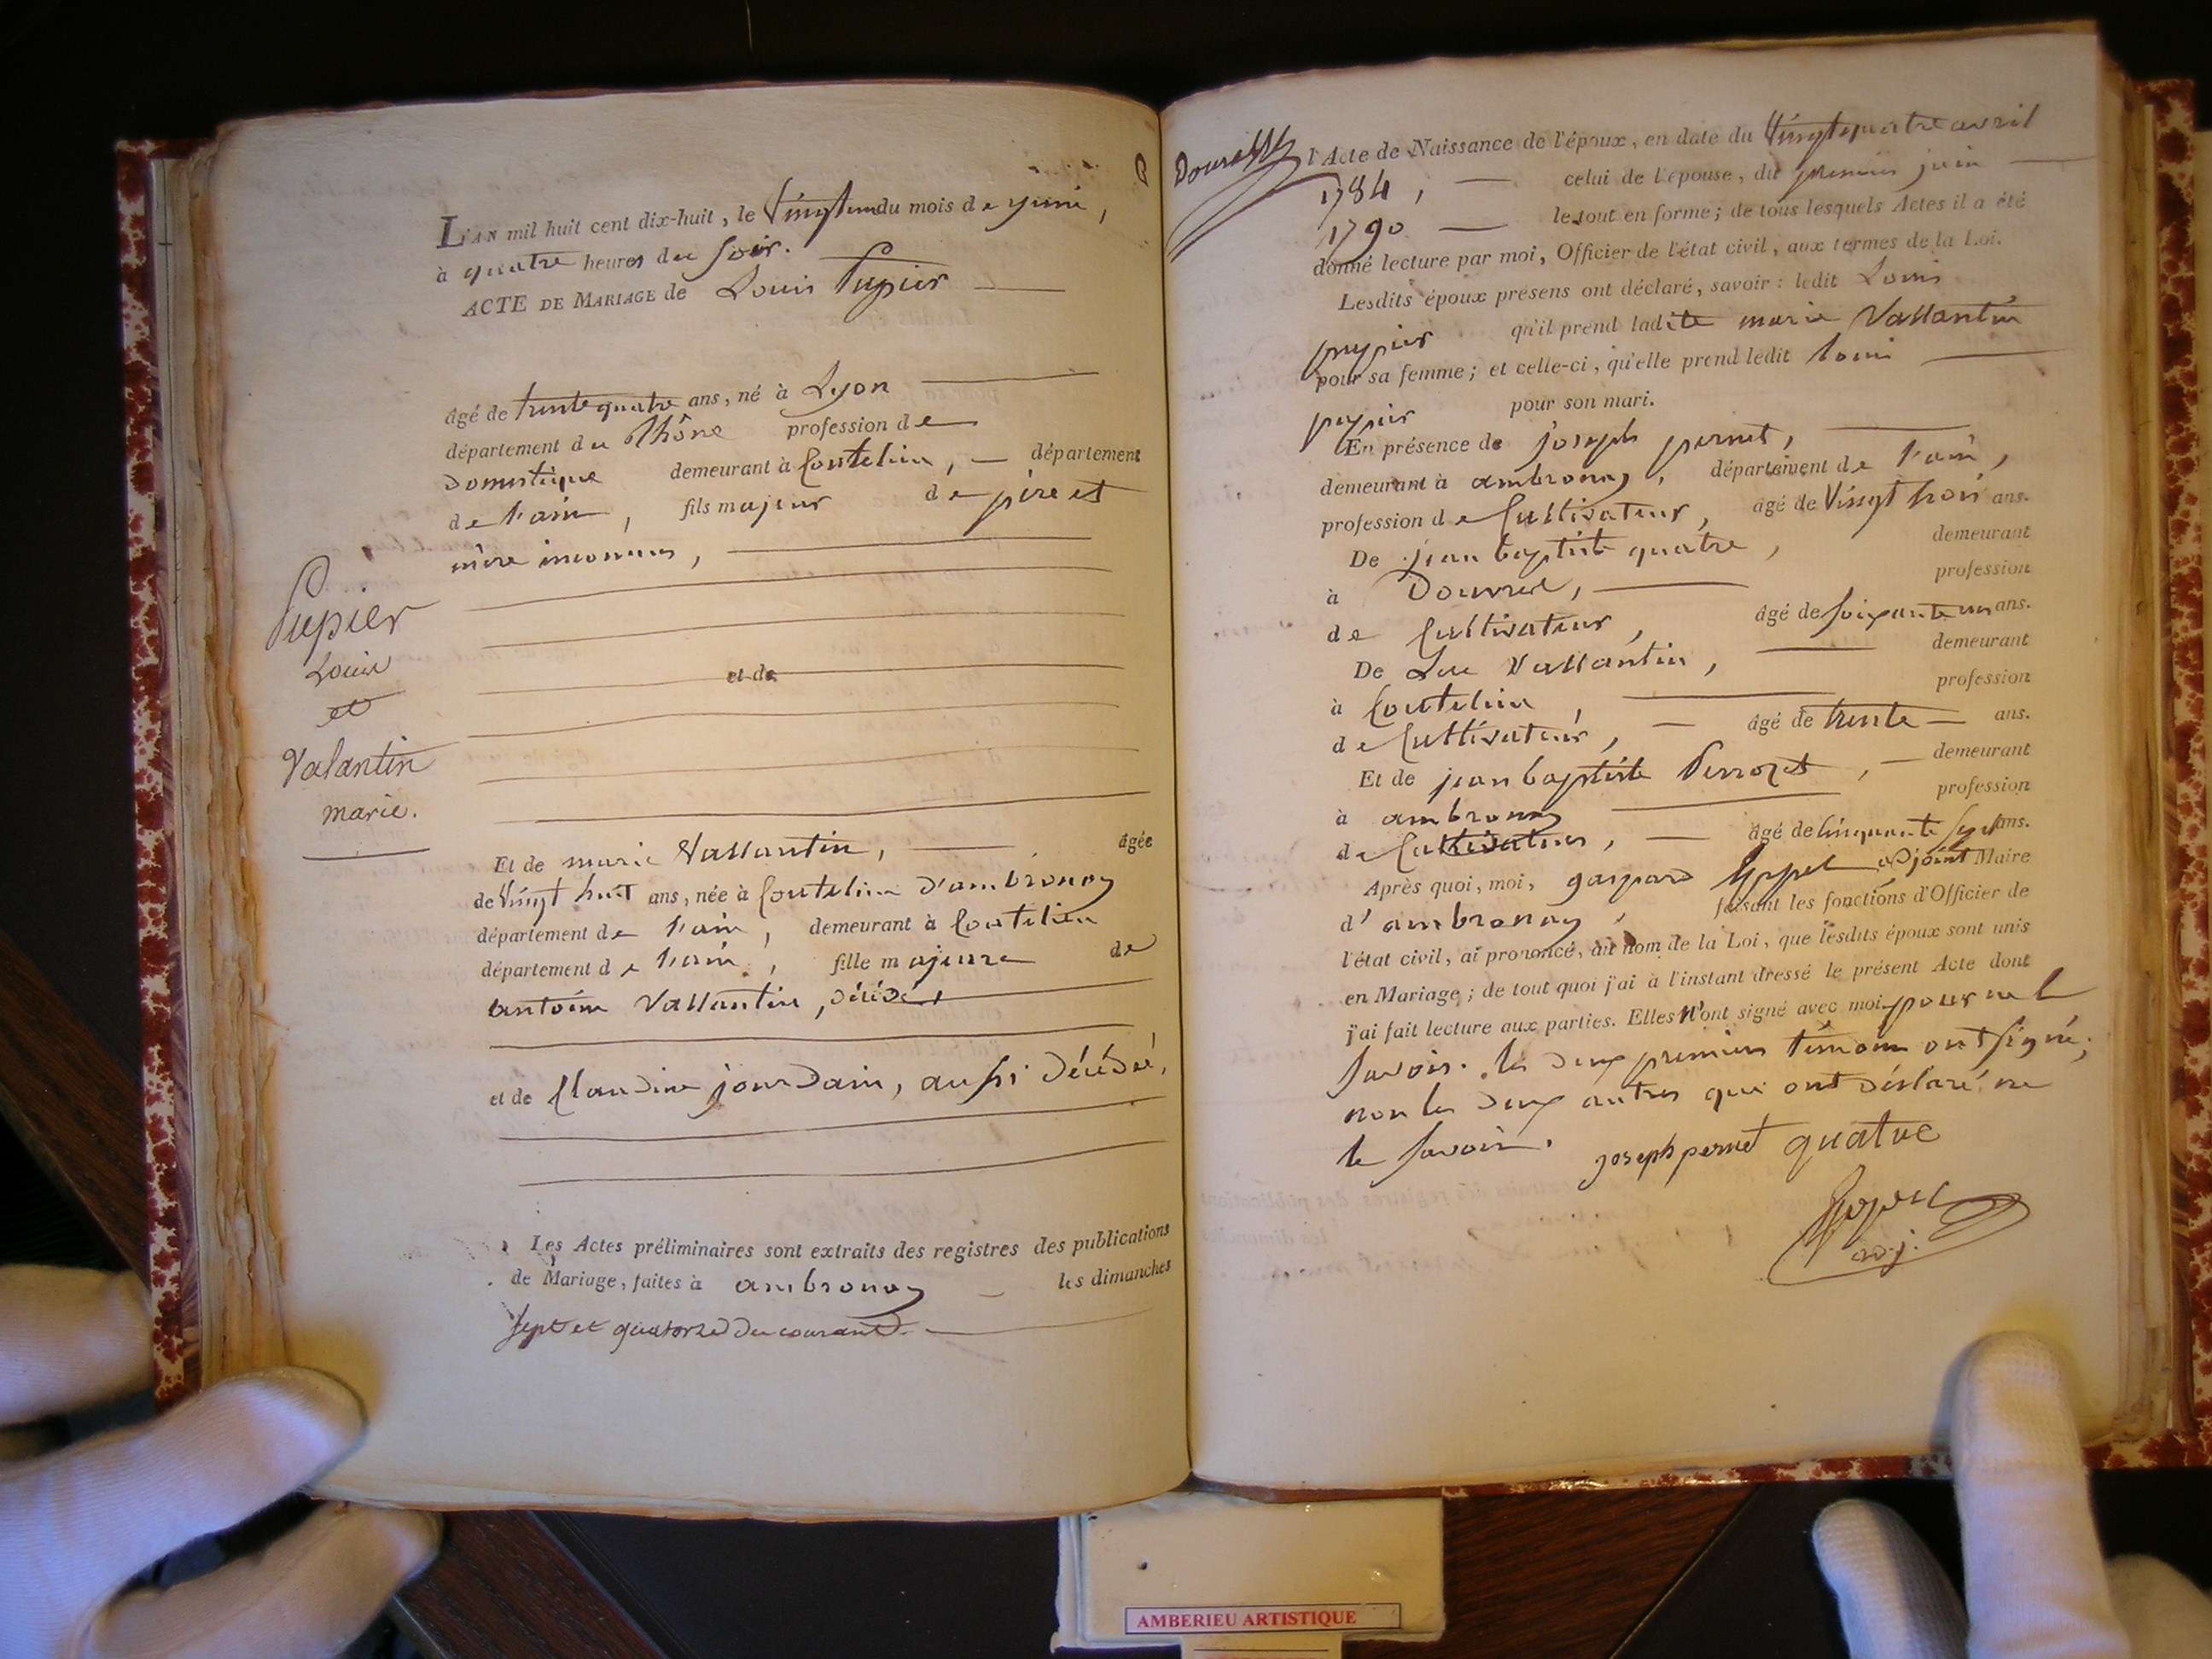 L'AN mil huit cent dix-huit, le Vingt un du mois de juin,
à quatre heures du soir.
ACTE DE MARIAGE de Louis Pupier
âgé de trente quatre ans, né à Lyon
département du Rhône profession de
Domestique demeurant à Coutelieu, département
de l'ain, fils majeur de père et
mère inconnus,
Pupier
Louis
et
Valantin
marie.
et de
Et de marie Vallantin, âgée
de Vingt huit ans, née à Coutelieu d'ambronay
département de l'ain, demeurant à Coutelieu
département de l'ain, fille majeure de
antoine Vallantin, décédé,
et de Claudine jourdain, aussi décédée,
Les Actes préliminaires sont extraits des registres des publications
de Mariage, faites à ambronay les dimanches
sept et quatorze du courant.
l'Acte de Naissance de l'époux, en date du Vingt quatre avril
1784, celui de l'épouse, du premier juin
1790 le tout en forme; de tous lesquels Actes il a été
donné lecture par moi, Officier de l'état civil, aux termes de la Loi.
Lesdits époux présens ont déclaré, savoir: ledit Louis
pupier qu'il prend ladite marie Vallantin
pour sa femme; et celle-ci, qu'elle prend ledit Louis
pupier pour son mari.
En présence de joseph pernet,
demeurant à ambronay, département de l'ain,
profession de Cultivateur, âgé de Vingt trois ans.
De jean baptiste quatre, demeurant
à Douvres, profession
de Cultivateur, âgé de soixante un ans.
De Luc Vallantin, demeurant
à Coutelieu, profession
de Cultivateur, âgé de trente ans.
Et de jean baptiste Perrozet, demeurant
à ambronay profession
de Cultivateur, âgé de cinquante sept ans.
Après quoi, moi, gaspard adjoint Maire
d'ambronay, faisant les fonctions d'Officier de
l'état civil, ai prononcé, au nom de la Loi, que lesdits époux sont unis
en Mariage; de tout quoi j'ai à l'instant dressé le présent Acte dont
j'ai fait lecture aux parties. Elles n'ont signé avec moi pour ne le
savoir. les deux premiers témoins ont signé,
non les deux autres qui ont déclaré ne
le savoir.
joseph pernet quatre
adj.
AMBERIEU ARTISTIQUE